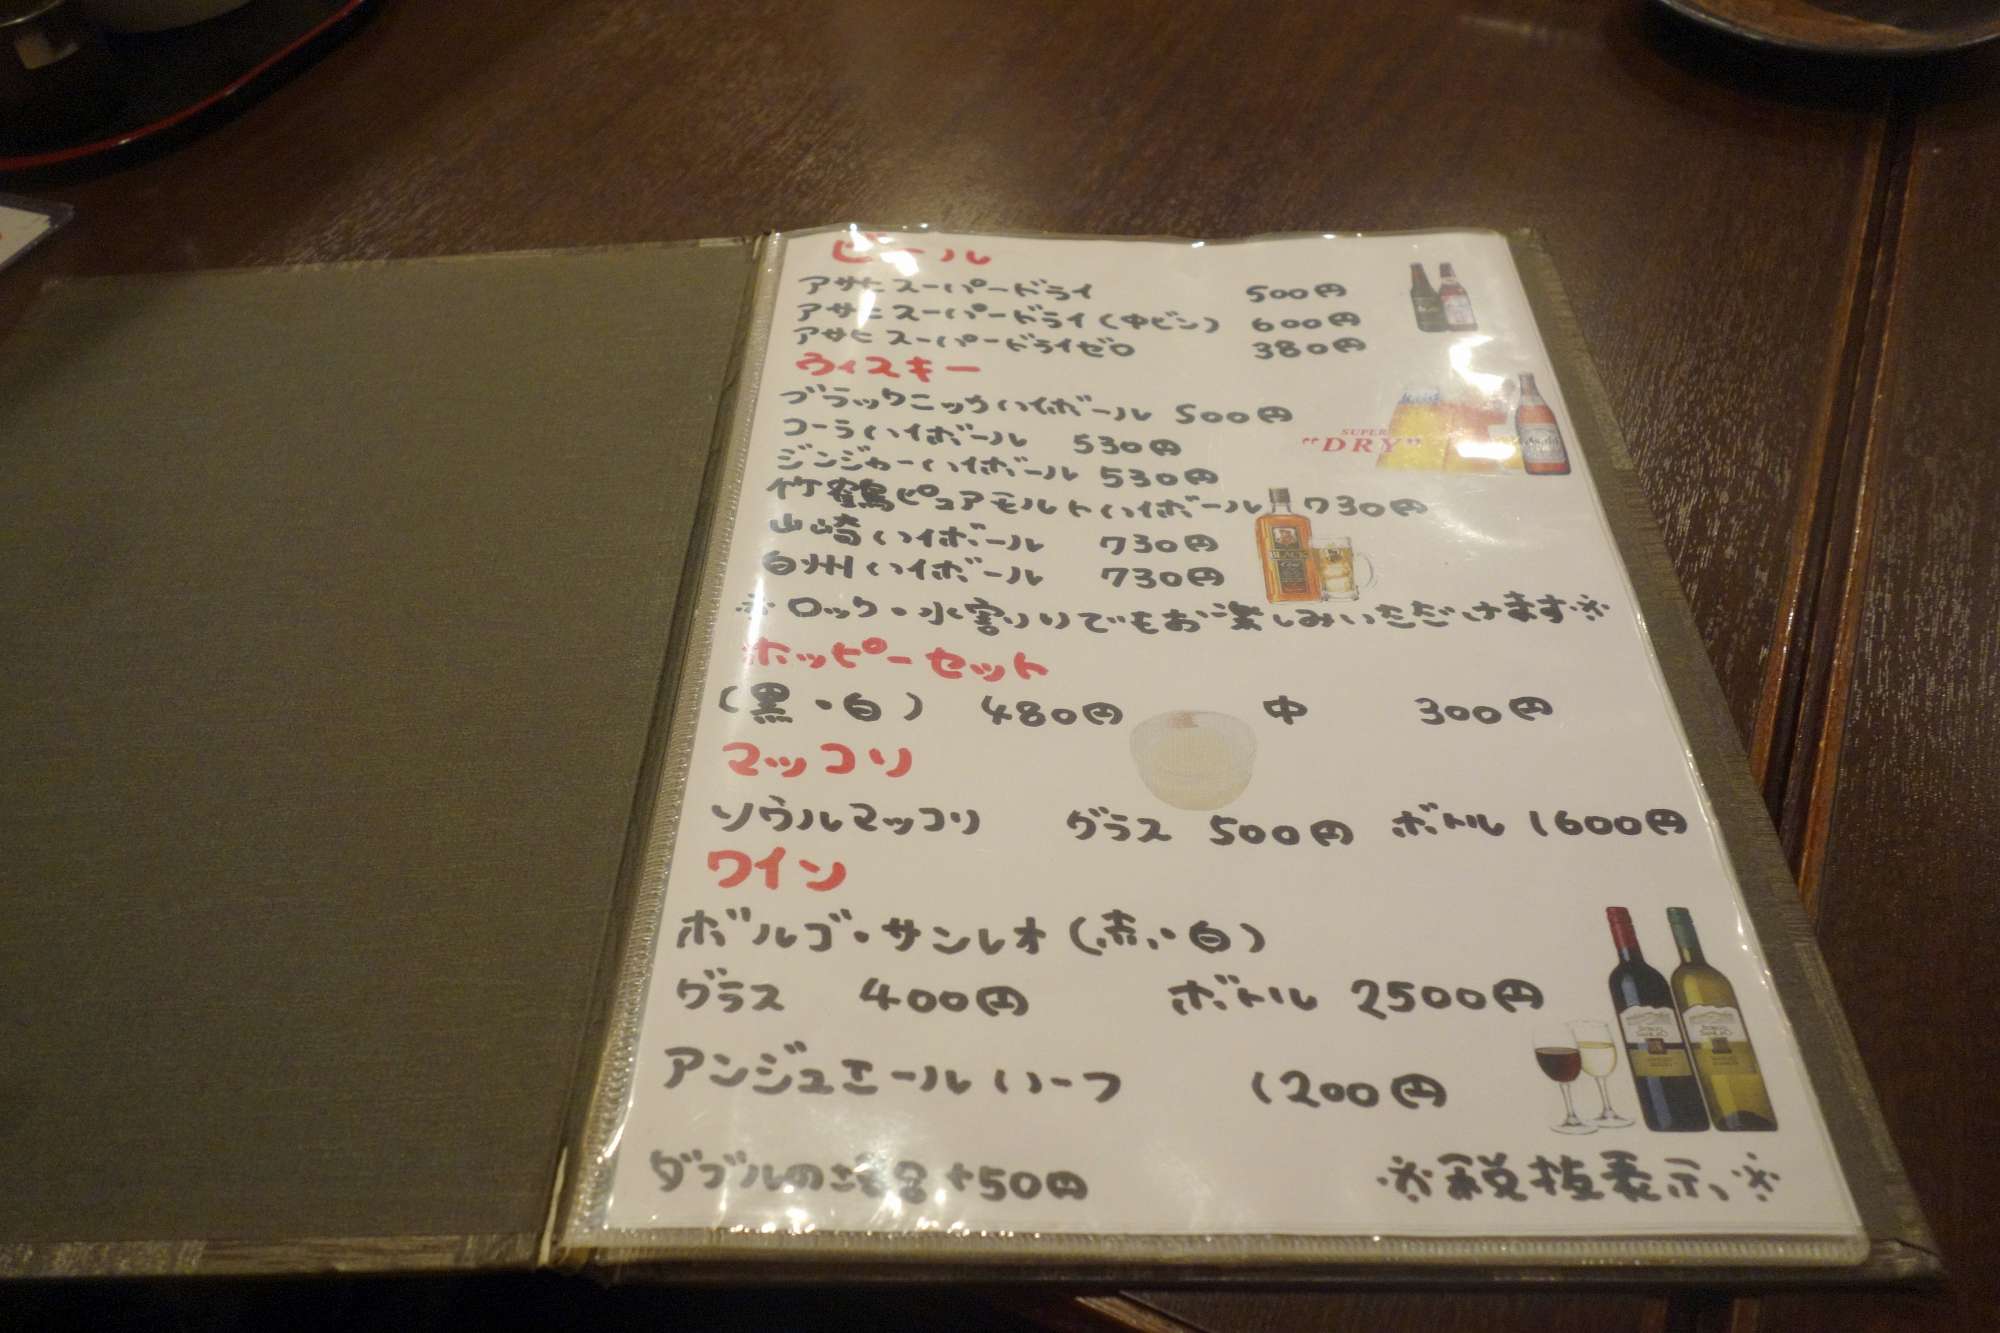 ビール
アサヒスーパードライ 500円
アサヒスーパードライ(中ビン) 600円
アサヒスーパードライゼロ 380円
ウィスキー
ブラックニッカハイボール 500円
コーラハイボール 530円
ジンジャーハイボール 530円
竹鶴ピュアモルトハイボール 730円
山崎ハイボール 730円
白州ハイボール 730円
※ロック・水割りでもお楽しみいただけます※
ホッピーセット
(黒・白) 480円 中 300円
マッコリ
ソウルマッコリ グラス 500円 ボトル 1600円
ワイン
ボルゴ・サンレオ(赤・白)
グラス 400円 ボトル 2500円
アンジュエールハーフ 1200円
ダブルの場合+50円 ※税抜表示※
SUPER
"DRY"
BLACK